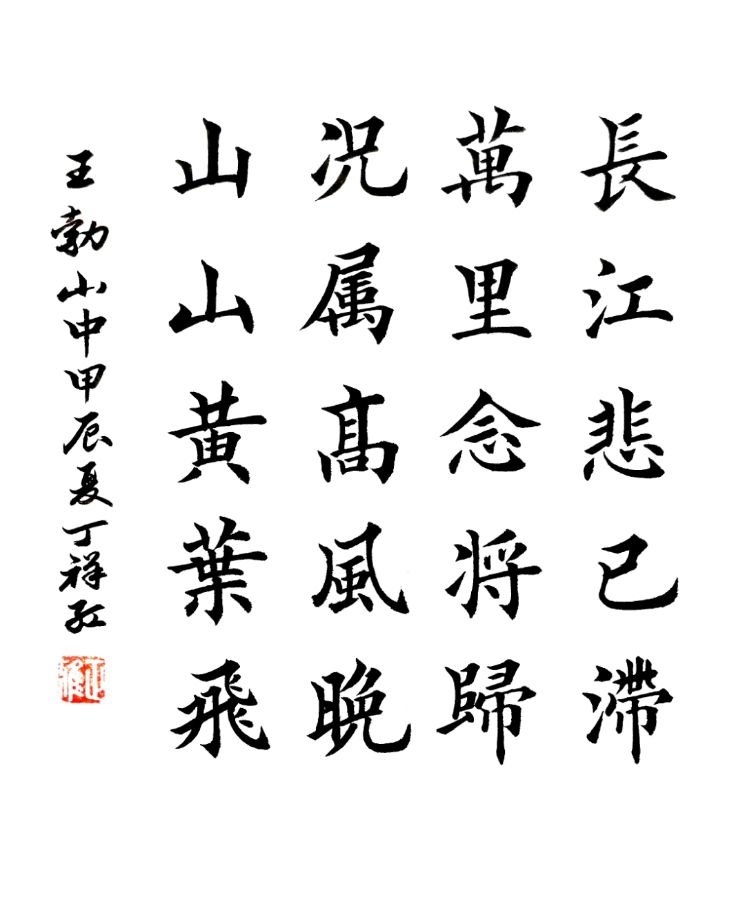 長江悲已滯
萬里念将歸
况属髙風晚
山山黃葉飛
王勃山中甲辰夏丁祥